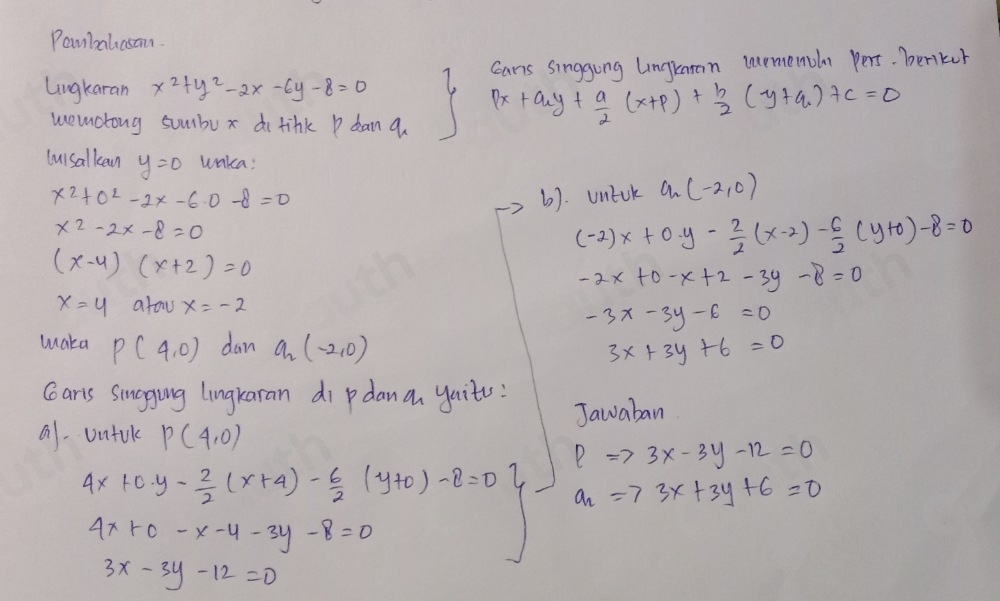 Pembahasan.
Lingkaran x²+y²-2x-6y-8=0
memotong sumbu x di titik P dan Q
misalkan y=0 maka:
x²+0²-2x-6.0-8=0
x²-2x-8=0
(x-4) (x+2)=0
x=4 atau x=-2
maka P(4,0) dan Q(-2,0)
Garis singgung lingkaran di P dan Q yaitu:
a). untuk P(4,0)
4x+0.y-2/2(x+4)-6/2(y+0)-8=0
4x+0-x-4-3y-8=0
3x-3y-12=0
Garis singgung lingkaran memenuhi pers. berikut
Px+Qy+a/2(x+P)+b/2(y+Q)+c=0
b). untuk Q(-2,0)
(-2)x+0.y-2/2(x-2)-6/2(y+0)-8=0
-2x+0-x+2-3y-8=0
-3x-3y-6=0
3x+3y+6=0
Jawaban
P => 3x-3y-12=0
Q => 3x+3y+6=0